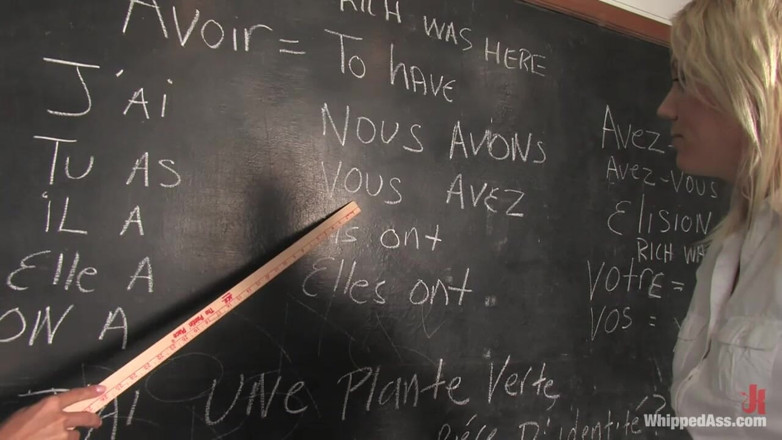 RICH WAS HERE
Avoir = To have
J'Ai
Tu AS
iL A
Elle A
ON A
Nous AViONS
Vous AVEZ
ont
Elles ont
Avez-
Avez-vous
Elision
RICH WA
Votre =
Vos =
J'Ai UNE PlANtE VertE
Piéce D'identité?
The Paint Place
WHIPPEDASS.COM